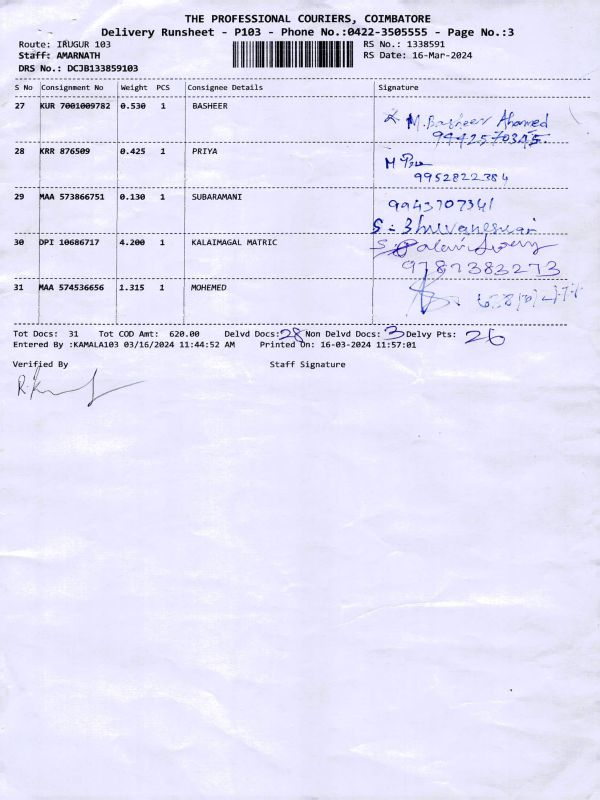 THE PROFESSIONAL COURIERS, COIMBATORE
Delivery Runsheet - P103 - Phone No.:0422-3505555 - Page No.:3
Route: IRUGUR 103 RS No.: 1338591
Staff: AMARNATH RS Date: 16-Mar-2024
DRS No.: DCJB133859103
S No Consignment No Weight PCS Consignee Details Signature
27 KUR 7001009782 0.530 1 BASHEER
K M. Basheer Ahamed
9442570345.
28 KRR 876509 0.425 1 PRIYA
9952822384
29 MAA 573866751 0.130 1 SUBARAMANI
9943707341
S. Bhuvaneswari
30 DPI 10686717 4.200 1 KALAIMAGAL MATRIC
9787383273
31 MAA 574536656 1.315 1 MOHEMED
Tot Docs: 31 Tot COD Amt: 620.00 Delvd Docs: 28 Non Delvd Docs: 3 Delvy Pts: 26
Entered By :KAMALA103 03/16/2024 11:44:52 AM Printed On: 16-03-2024 11:57:01
Verified By Staff Signature